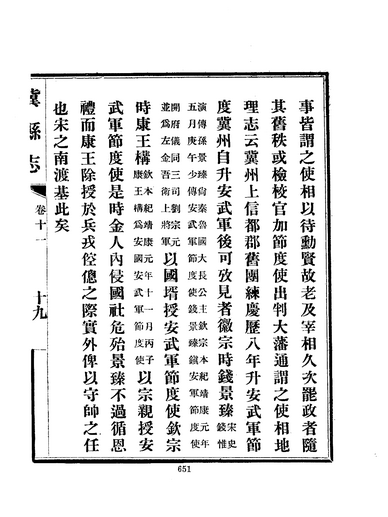 事皆謂之使相以待勳賢故老及宰相久次罷政者隨
其舊秩或檢校官加節度使出判大藩通謂之使相地
理志云冀州上信都郡舊團練慶歷八年升安武軍節
度冀州自升安武軍後可攷見者徽宗時錢景臻宋史錢惟
演傳孫景臻尙秦魯國大長公主欽宗本紀靖康元年
五月庚午少傅安武軍節度使錢景臻鎭安軍節度使
開府儀同三司劉宗元
並爲左金吾衛上將軍以國壻授安武軍節度使欽宗
時康王構欽宗本紀靖康元年十一月丙子
康王構爲安國安武軍節度使以宗親授安
武軍節度使是時金人內侵國社危殆景臻不過循恩
禮而康王除授於兵戎倥傯之際實外俾以守帥之任
也宋之南渡基此矣
冀縣志
卷十一
十九
651